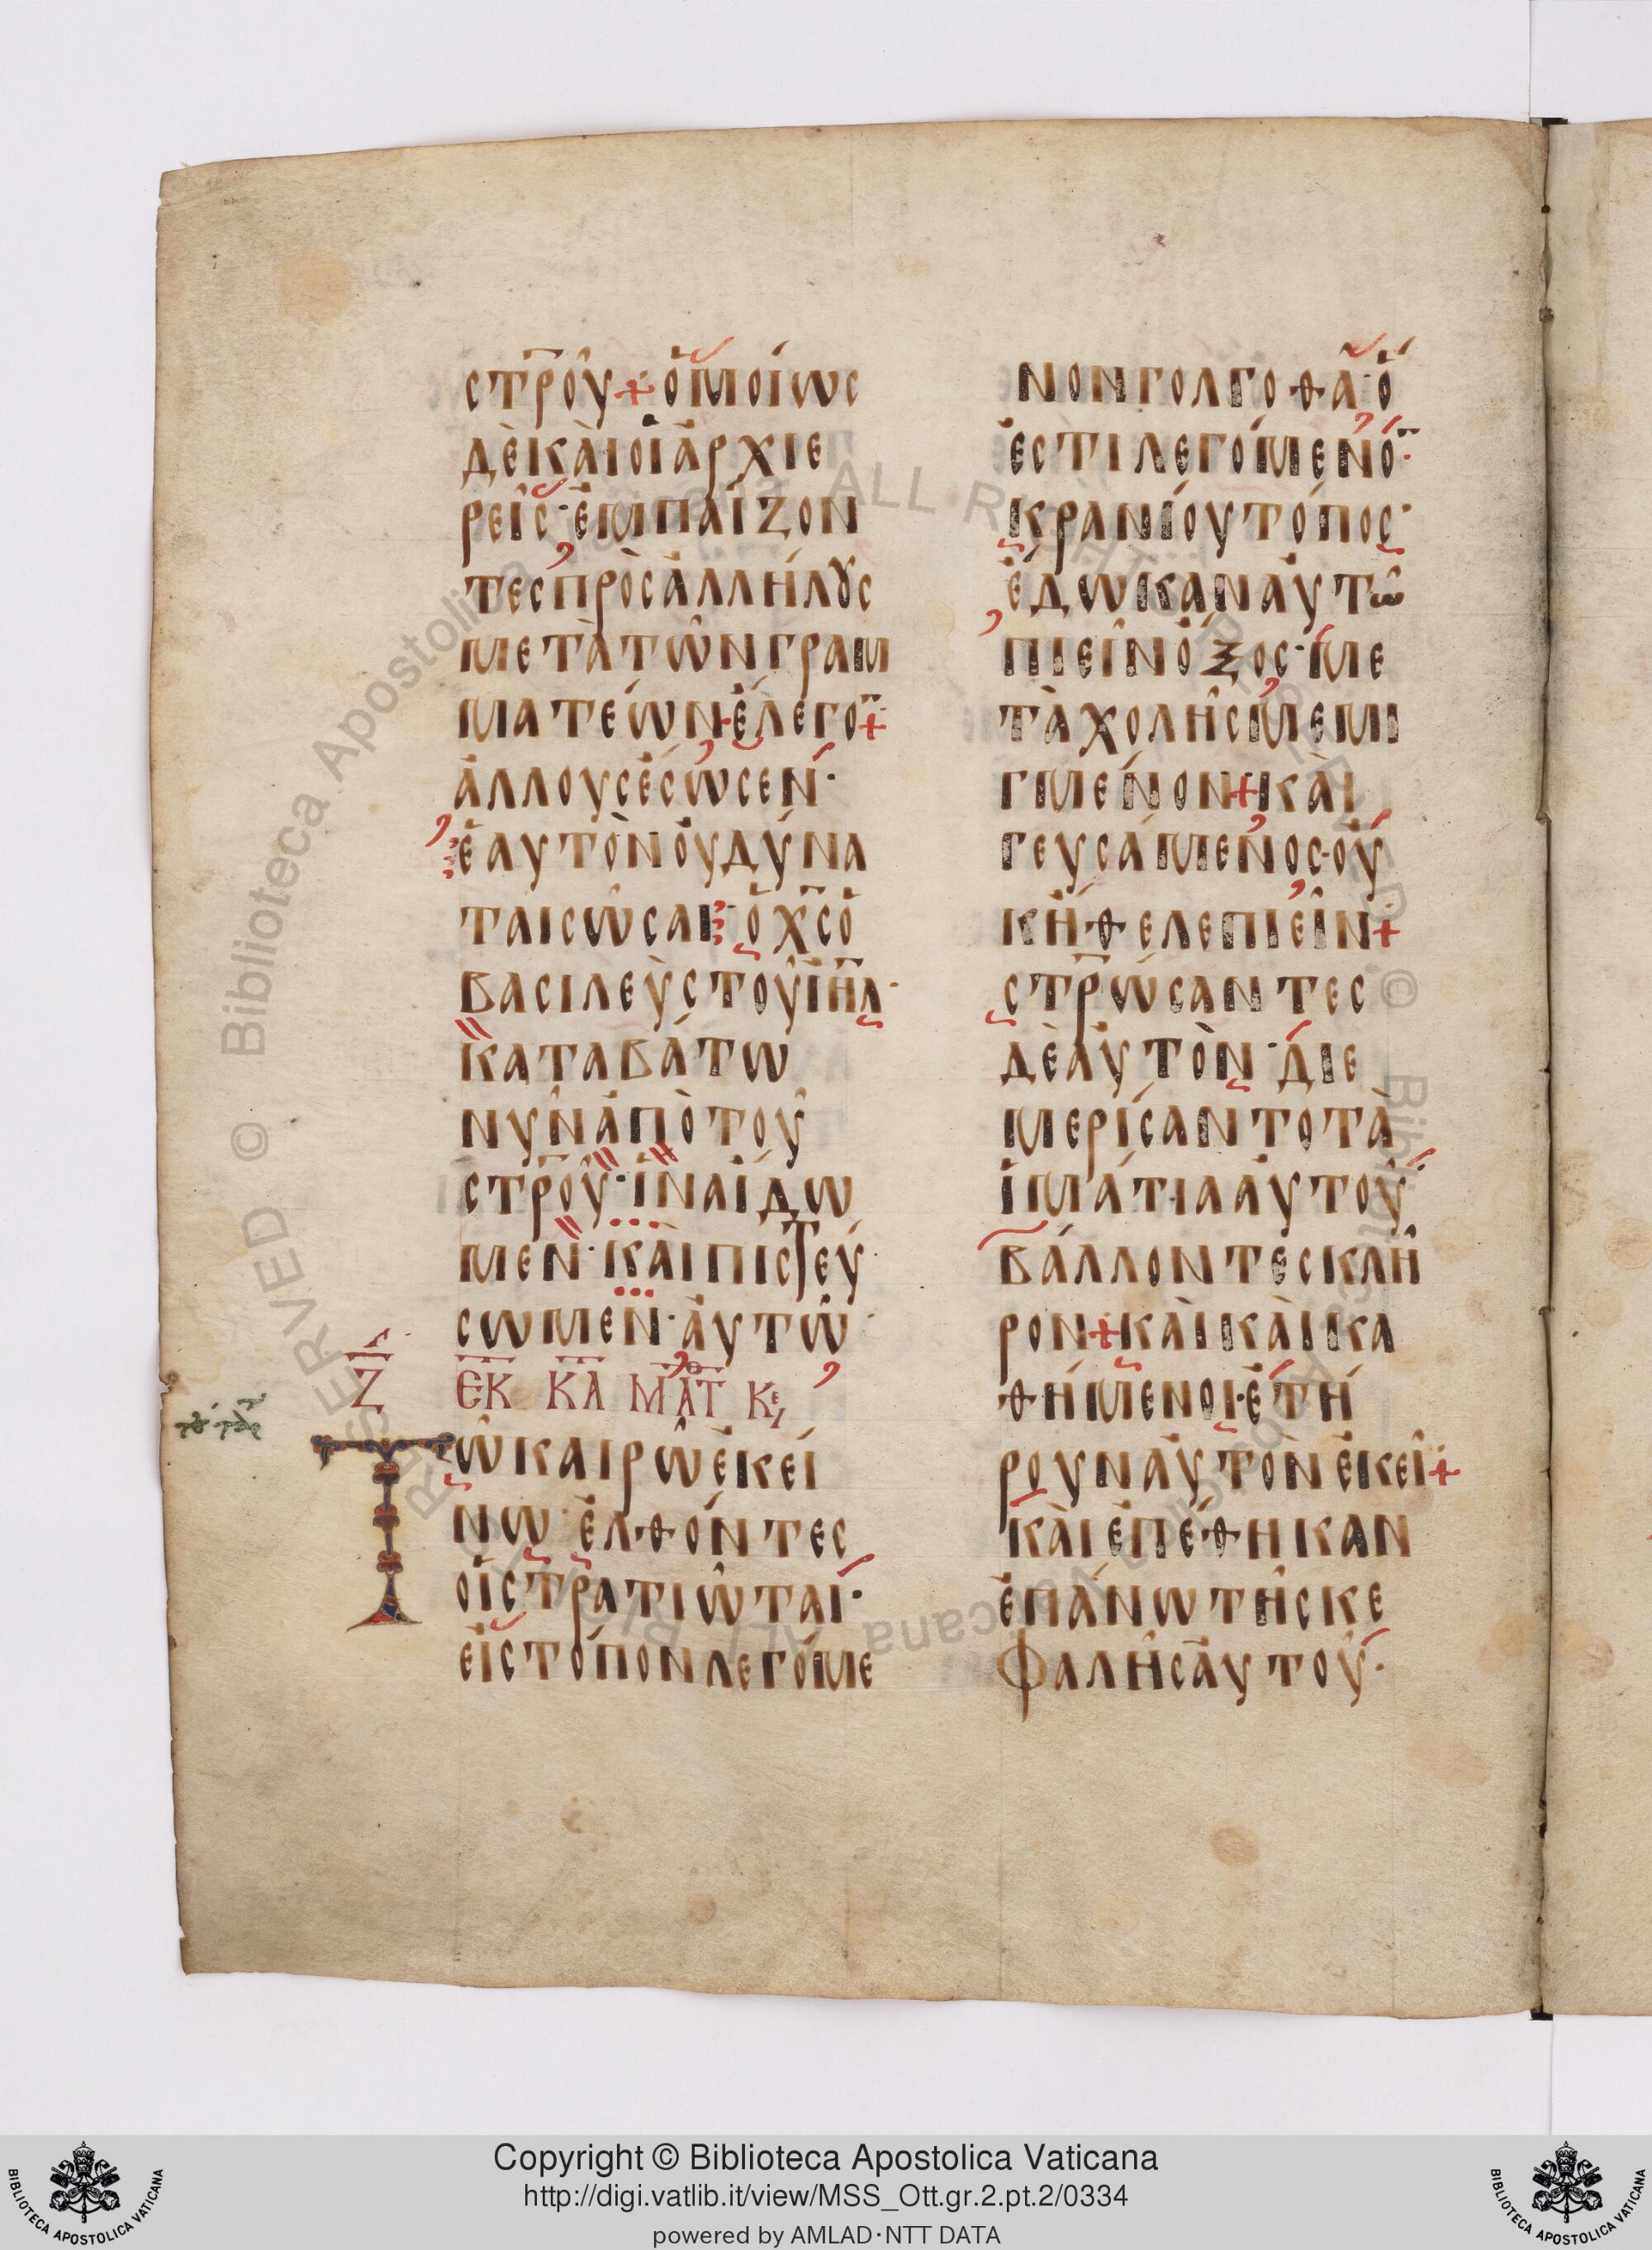 ϹΤΡ̅ΟΥ͂+ὉΜΟΊΩϹ
ΔῈΚΑῚΟἹἈΡΧΙΕ
ΡΕΙ͂Ϲ·ἘΜΠΑΊΖΟΝ
ΤΕϹΠΡῸϹἈΛΛΉΛȢϹ
ΜΕΤᾺΤΩ͂ΝΓΡΑΜ
ΜΑΤΈΩΝ·ἜΛΕΓΟ̅+
ἌΛΛΟΥϹἜϹΩϹΕΝ·
ἙΑΥΤῸΝΟΥ̓ΔΎΝΑ
ΤΑΙϹΩ͂ϹΑΙ·ὉΧ̅Ϲ̅Ὁ
ΒΑϹΙΛΕῪϹΤΟΥ͂ΙΗ̅Λ·
ΚΑΤΑΒΆΤΩ
ΝΥ͂ΝἈΠῸΤΟΥ͂
ϹΤΡ̅ΟΥ͂·ἽΝΑἼΔΩ
ΜΕΝ·ΚΑῚΠΙϹΤΕΎ
ϹΩΜΕΝ·ΑΥ̓ΤΩ͂·
Ζ ΕΚ ΚΑ ΜΑΤ̅Θ ΚΕ,
ΤΩ͂ΚΑΙΡΩ͂ἘΚΕΊ
ΝΩ ἘΛΘΌΝΤΕϹ
ΟἹϹΤΡΑΤΙΩ͂ΤΑΙ·
ΕἸϹΤΌΠΟΝΛΕΓΌΜΕ
ΝΟΝΓΟΛΓΟΘΑ͂·Ὅ
ἘϹΤΙΛΕΓΌΜΕΝΟ̅·
ΚΡΑΝΊΟΥΤΌΠΟϹ·
ἜΔΩΚΑΝΑΥ̓ΤΩ͂
ΠΙΕΙ͂ΝὌΞΟϹ·ΜΕ
ΤᾺΧΟΛΗ͂ϹΜΕΜΙ
ΓΜΈΝΟΝ+ΚΑῚ
ΓΕΥϹΆΜΕΝΟϹ·ΟΥ̓
ΚΉΘΕΛΕΠΙΕΙ͂Ν+
ϹΤΡ̅ΏϹΑΝΤΕϹ
ΔῈΑΥ̓ΤῸΝ·ΔΙΕ
ΜΕΡΊϹΑΝΤΟΤᾺ
ἹΜΆΤΙΑΑΥ̓ΤΟΥ͂·
ΒΆΛΛΟΝΤΕϹΚΛΗ͂
ΡΟΝ+ΚΑῚΚΑῚΚΑ
ΘΉΜΕΝΟΙ·ἘΤΉ
ΡΟΥΝΑΥ̓ΤῸΝἘΚΕΙ͂+
ΚΑῚἘΠΈΘΗΚΑΝ
ἘΠΆΝΩΤΗ͂ϹΚΕ
ΦΑΛΗ͂ϹΑΥ̓ΤΟΥ͂·
Copyright © Biblioteca Apostolica Vaticana
http://digi.vatlib.it/view/MSS_Ott.gr.2.pt.2/0334
powered by AMLAD·NTT DATA